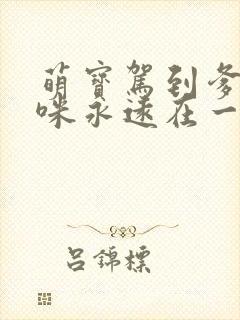 萌寶駕到爹
咪永遠在一
呂錦標